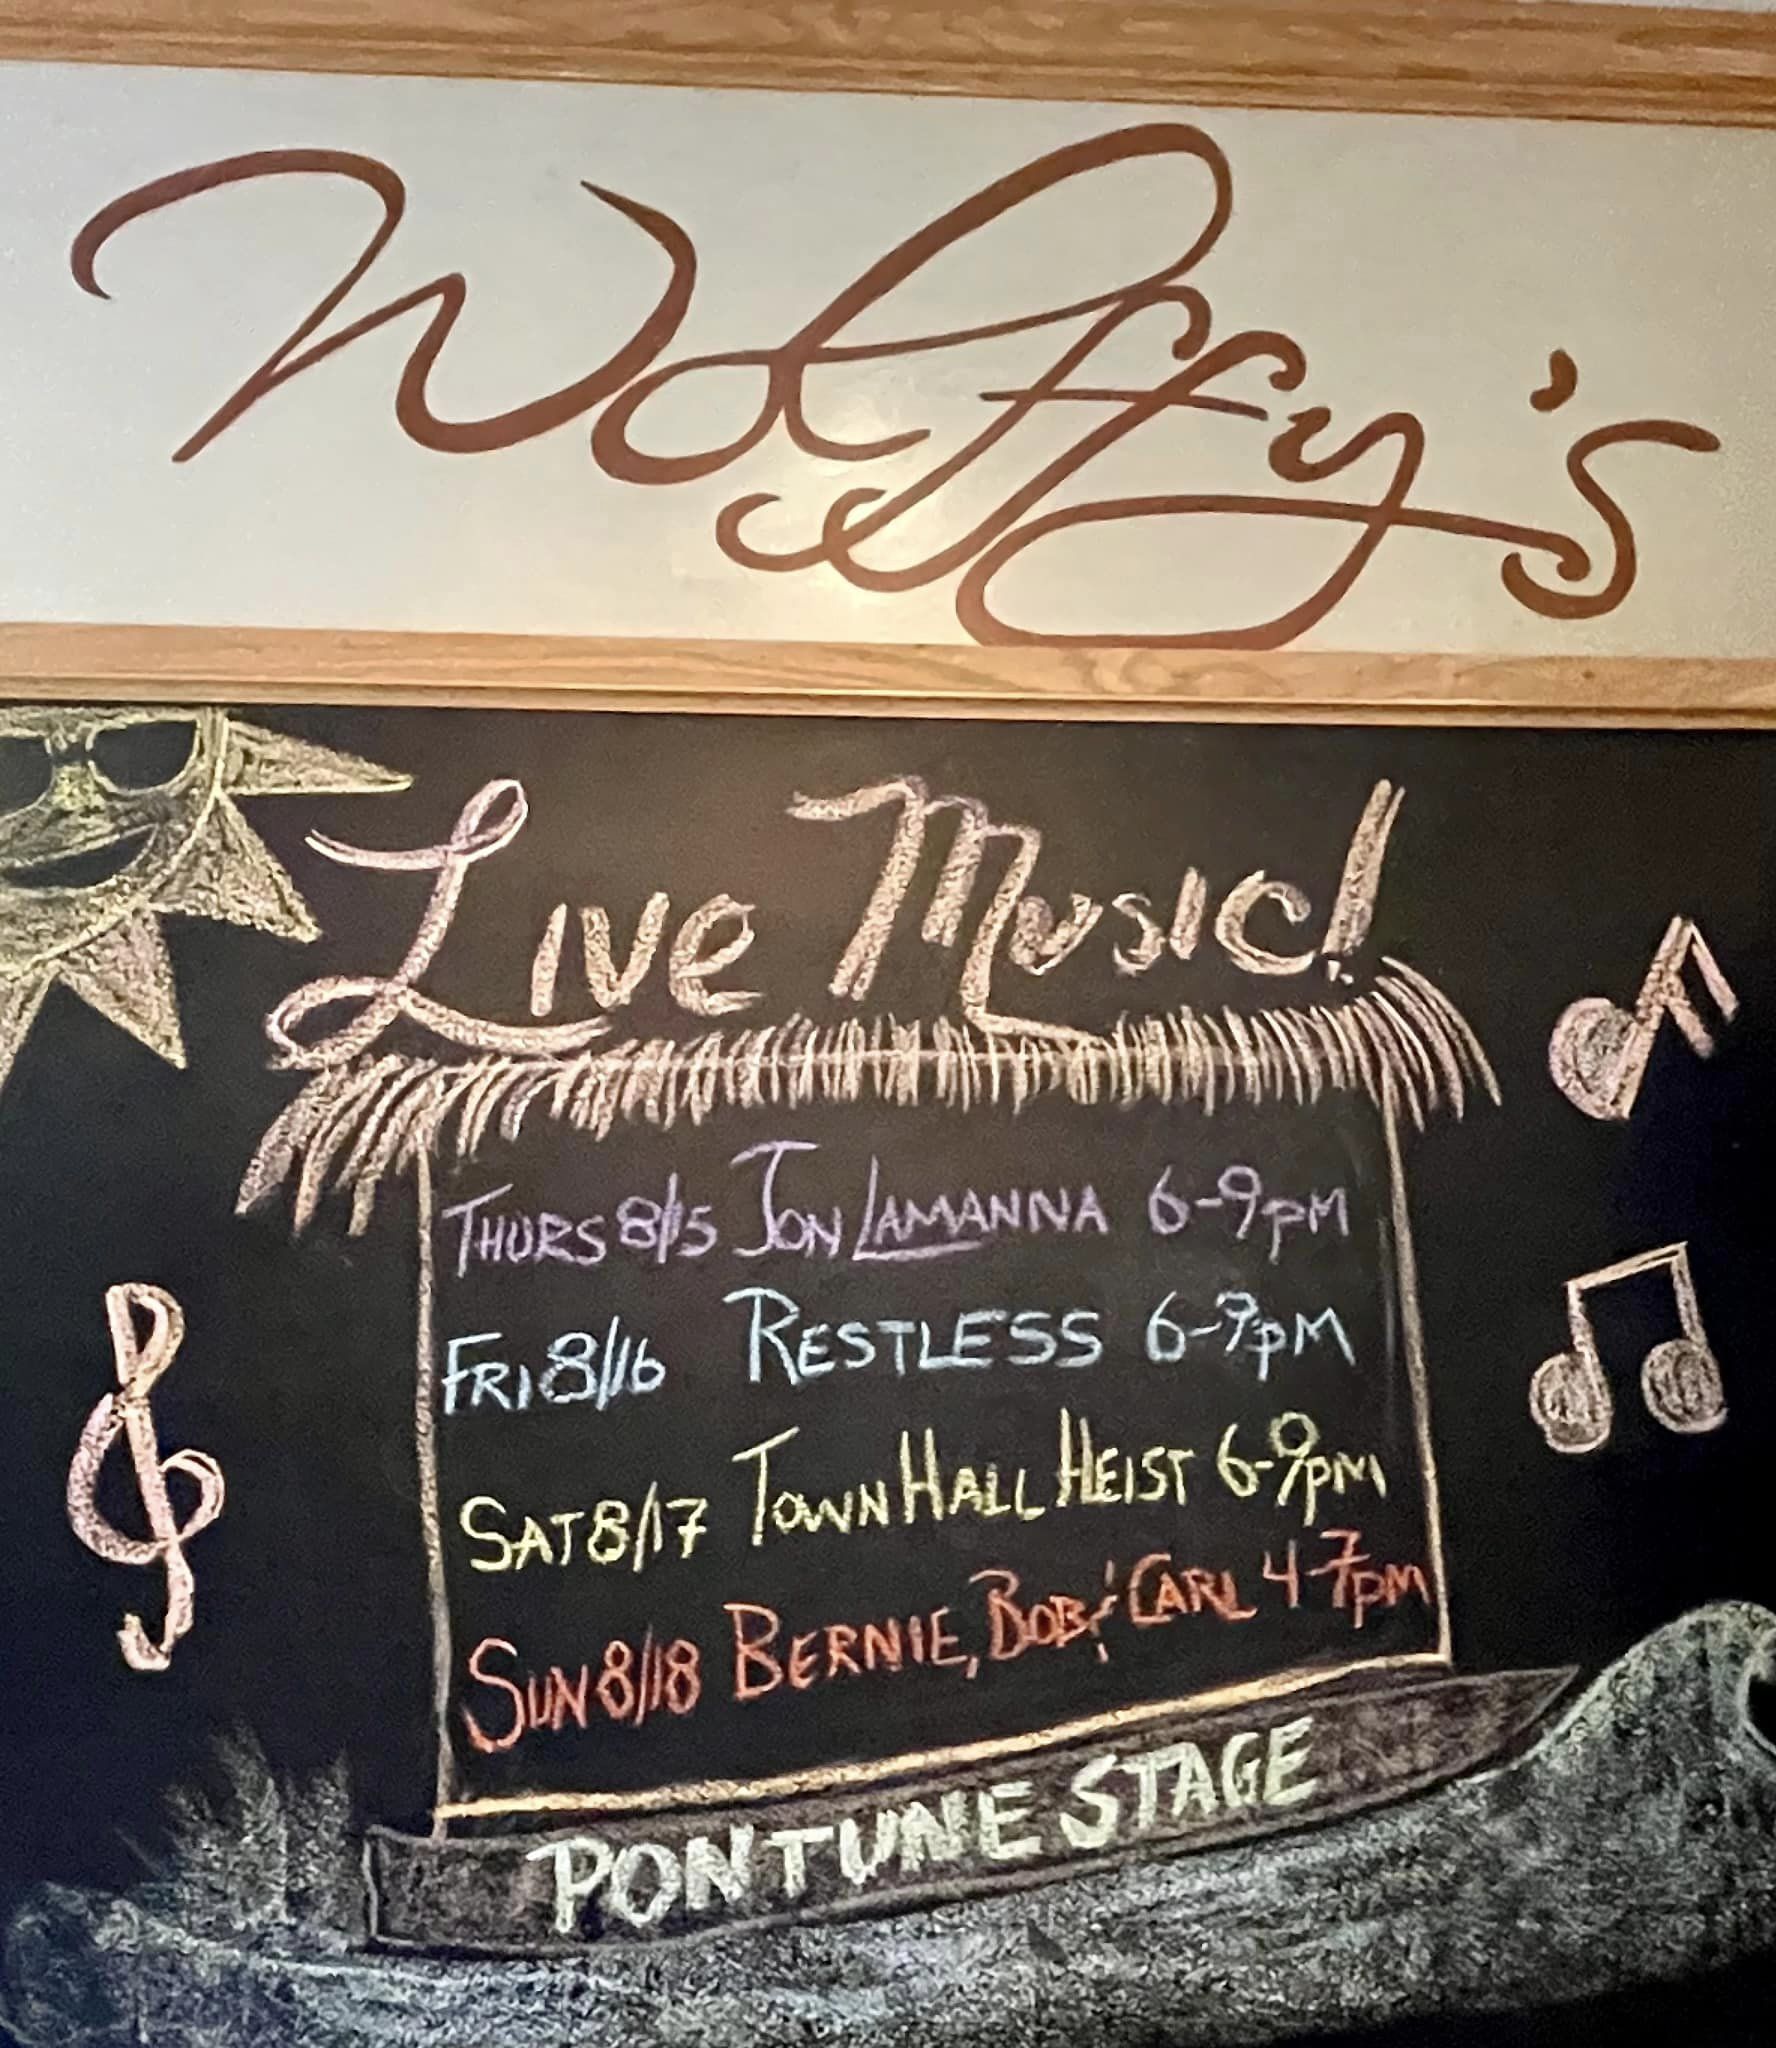 Wolffy's
Live Music!
THURS 8/15 JON LAMANNA 6-9pM
FRI 8/16 RESTLESS 6-9pM
SAT 8/17 TOWN HALL HEIST 6-9pM
SUN 8/18 BERNIE, BOB & CARL 4-7pm
PONTUNE STAGE